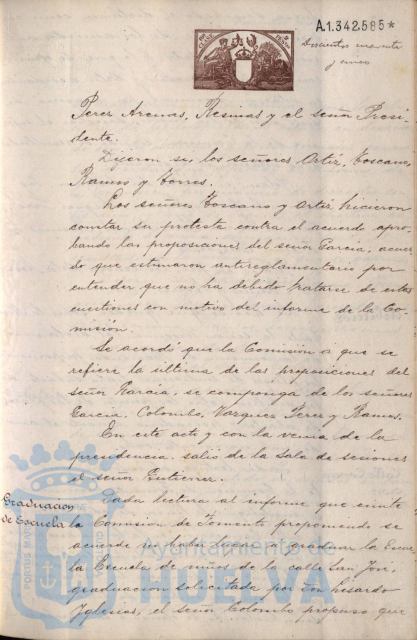 A.1.342.585*
Doscientos cuarenta
y cinco
Perez Arenas, Resinas y el señor Presi-
dente.
Dijeron si, los señores Ortiz, Toscano,
Ramos y Torres.
Los señores Toscano y Ortiz hicieron
constar su protesta contra el acuerdo apro-
bando las proposiciones del señor Garcia, acuer
do que estimaron antireglamentario por
entender que no ha debido tratarse de estas
cuestiones con motivo del informe de la Co-
misión.
Se acordó que la Comisión a que se
refiere la última de las proposiciones del
señor Garcia, se componga de los señores
Garcia, Colombo, Vazquez Perez y Ramos.
En este acto y con la venia de la
presidencia salió de la Sala de sesiones
el señor Gutierrez.
Graduacion
de Escuela
Dada lectura al informe que emite
la Comisión de Fomento proponiendo se
acuerde no haber lugar a graduar la Escue
la Escuela de niños de la calle San José,
graduacion solicitada por Don Lisardo
Yglesias, el señor Colombo propuso que
Ayuntamiento de
HUELVA